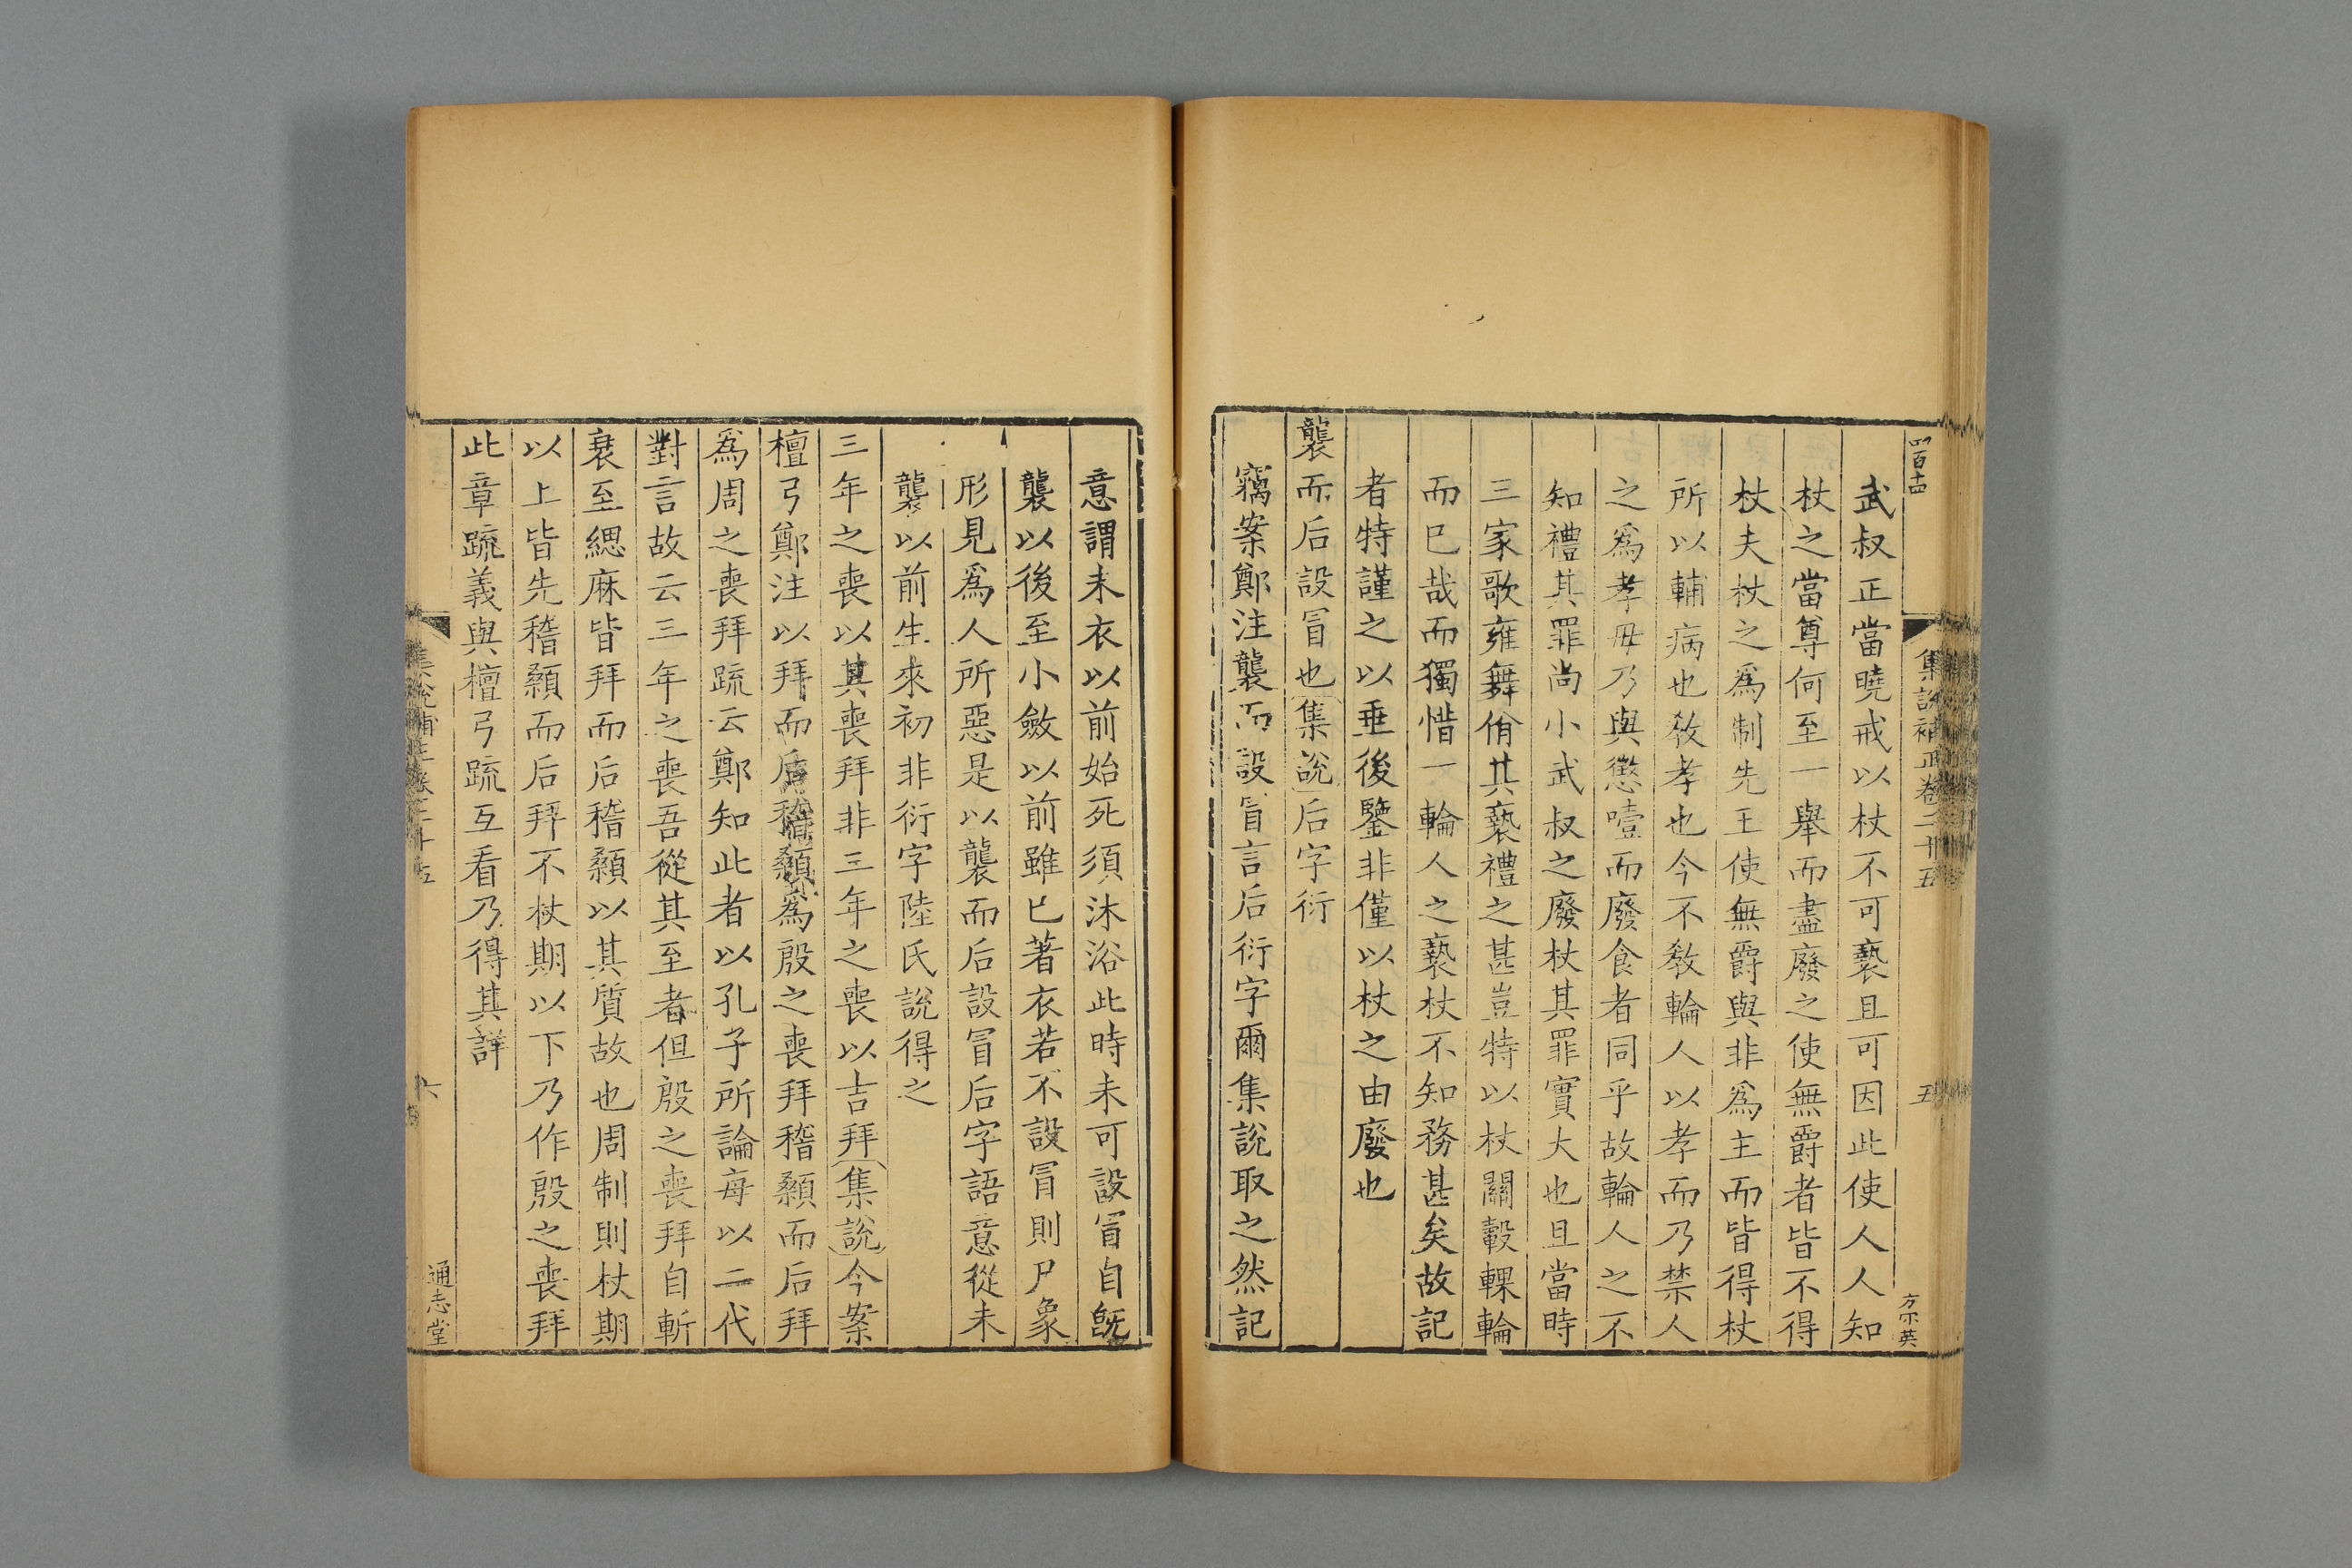 四百十四
集說補正卷二十五
五
方尔英
武叔正當曉戒以杖不可褻且可因此使人人知
杖之當尊何至一舉而盡廢之使無爵者皆不得
杖夫杖之爲制先王使無爵與非爲主而皆得杖
所以輔病也敎孝也今不敎輪人以孝而乃禁人
之爲孝毋乃與懲噎而廢食者同乎故輪人之不
知禮其罪尚小武叔之廢杖其罪實大也且當時
三家歌雍舞佾其褻禮之甚豈特以杖關轂輠輪
而已哉而獨惜一輪人之褻杖不知務甚矣故記
者特謹之以垂後鑒非僅以杖之由廢也
襲而后設冒也集說后字衍
竊案鄭注襲而設冒言后衍字爾集說取之然記
意謂未衣以前始死須沐浴此時未可設冒自旣
襲以後至小斂以前雖已著衣若不設冒則尸象
形見爲人所惡是以襲而后設冒后字語意從未
襲以前生來初非衍字陸氏說得之
三年之喪以其喪拜非三年之喪以吉拜集說今案
檀弓鄭注以拜而后稽顙爲殷之喪拜稽顙而后拜
爲周之喪拜疏云鄭知此者以孔子所論每以二代
對言故云三年之喪吾從其至者但殷之喪拜自斬
衰至緦麻皆拜而后稽顙以其質故也周制則杖期
以上皆先稽顙而后拜不杖期以下乃作殷之喪拜
此章疏義與檀弓疏互看乃得其詳
集說補正卷二十五
六
通志堂